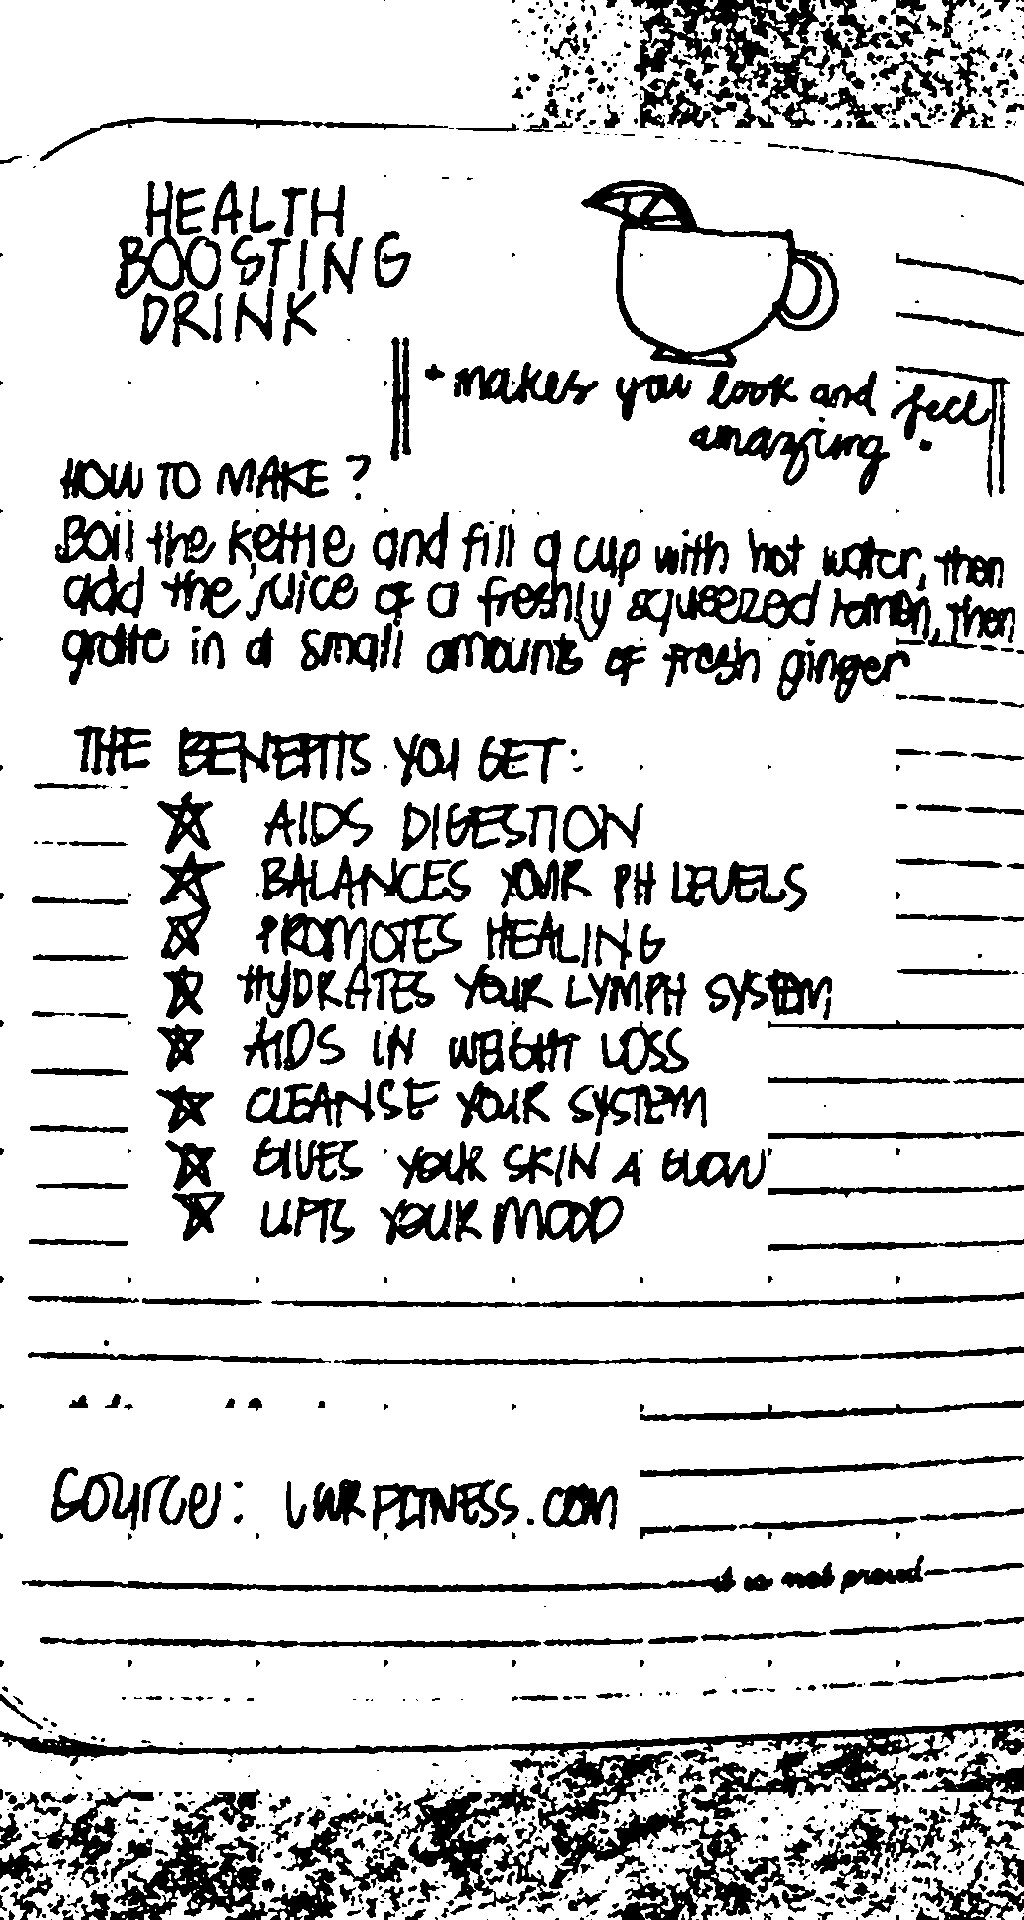 HEALTH
BOOSTING
DRINK
• makes you look and feel
amazing •
HOW TO MAKE ?
Boil the kettle and fill a cup with hot water, then
add the juice of a freshly squeezed lemon, then
gratte in a small amounts of fresh ginger
THE BENEFITS YOU GET :
☆ AIDS DIGESTION
☆ BALANCES YOUR PH LEVELS
☆ PROMOTES HEALING
☆ HYDRATES YOUR LYMPH SYSTEM
☆ AIDS IN WEIGHT LOSS
☆ CLEANSE YOUR SYSTEM
☆ GIVES YOUR SKIN A GLOW
☆ LIFTS YOUR MOOD
Source : LWRFITNESS.COM
it is not proud